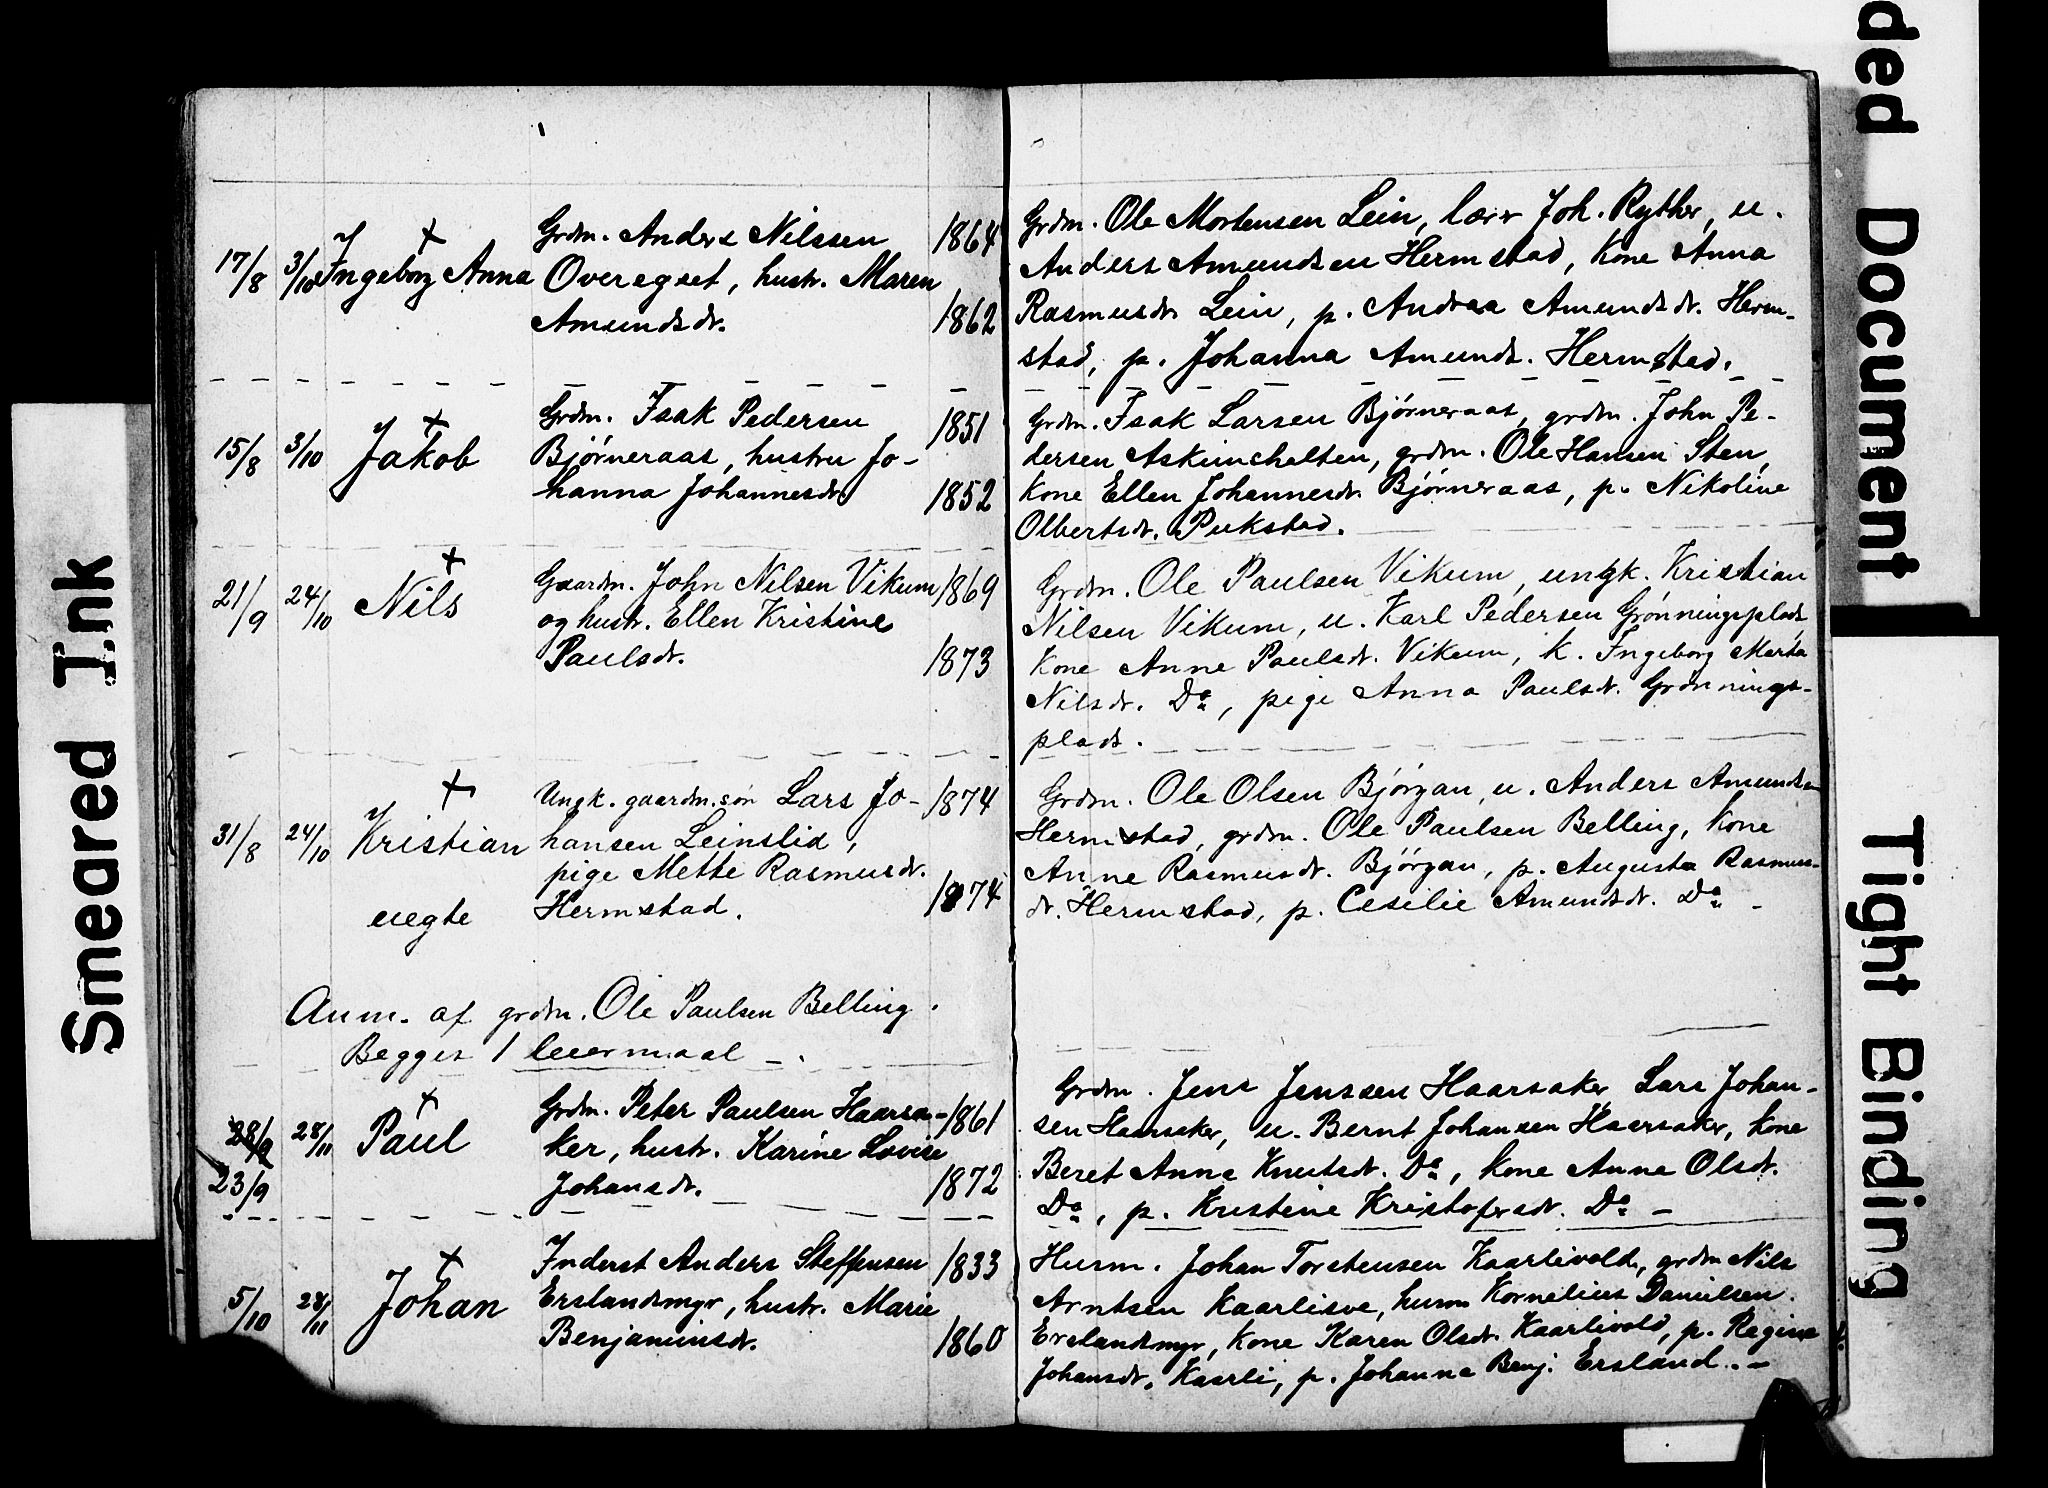 17/8 3/10 Ingeborg Anna
Grdm. Anders Nilssen 1864
Overegset, hustr. Maren
Amundsdr. 1862
Grdm. Ole Mortensen Lein, lærer Joh. Ryther, u.
Anders Amundsen Hermstad, kone Anna
Rasmusdr. Lein, p. Andrea Amundsdr. Herm-
stad, p. Johanna Amunds. Hermstad.
15/8 3/10 Jakob
Grdm. Isak Pedersen 1851
Bjørneraas, hustru Jo-
hanna Johannesdr. 1852
Grdm. Isak Larsen Bjørneraas, grdm. John Pe-
dersen Askimchalten, grdm. Ole Hansen Sten,
kone Ellen Johannesdr. Bjørneraas, p. Nikoline
Olbertsdr. Pukstad.
21/9 24/10 Nils
Gaardm. John Nilsen Vikum 1869
og hustr. Ellen Kristine
Paulsdr. 1873
Grdm. Ole Paulsen Vikum, ungk. Kristian
Nilsen Vikum, u. Karl Pedersen Grønningsplads
kone Anne Paulsdr. Vikum, k. Ingeborg Marta
Nilsdr. Do, pige Anna Paulsdr. Grønnings-
plads.
31/8 24/10 Kristian
uegte
Ungk. gaardm.søn Lars Jo- 1874
hansen Leinslid,
pige Mette Rasmusdr.
Hermstad. 1874
Grdm. Ole Olsen Bjørgan, u. Anders Amundsen
Hermstad, grdm. Ole Paulsen Belling, kone
Anne Rasmusdr. Bjørgan, p. Augusta Rasmus-
dr. Hermstad, p. Cesilie Amundsdr. Do -
Anm. af grdm. Ole Paulsen Belling.
Begges 1 leiermaal -.
28/9 28/11 Paul
23/9
Grdm. Peter Paulsen Haarsa- 1861
ker, hustr. Karine Lovise
Johansdr. 1872
Grdm. Jens Jenssen Haarsaker, Lars Johan-
sen Haarsaker, u. Bernt Johansen Haarsaker, kone
Beret Anna Knutsdr. Do, kone Anne Olsdr.
Do, p. Kristine Kristofersdr. Do -
5/10 28/11 Johan
Inderst Anders Steffensen 1833
Erslandsmyr, hustr. Marie
Benjaminsdr. 1860
Husm. Johan Torstensen Kaarlivold, grdm Nils
Arntsen Kaarlisve, husm Kornelius Danielsen
Erslandsmyr, kone Karen Olsdr. Kaarlivold, p. Regine
Johansdr. Kaarli, p. Johanna Benj. Ersland. -
Smeared Ink
ded Document
Tight Binding